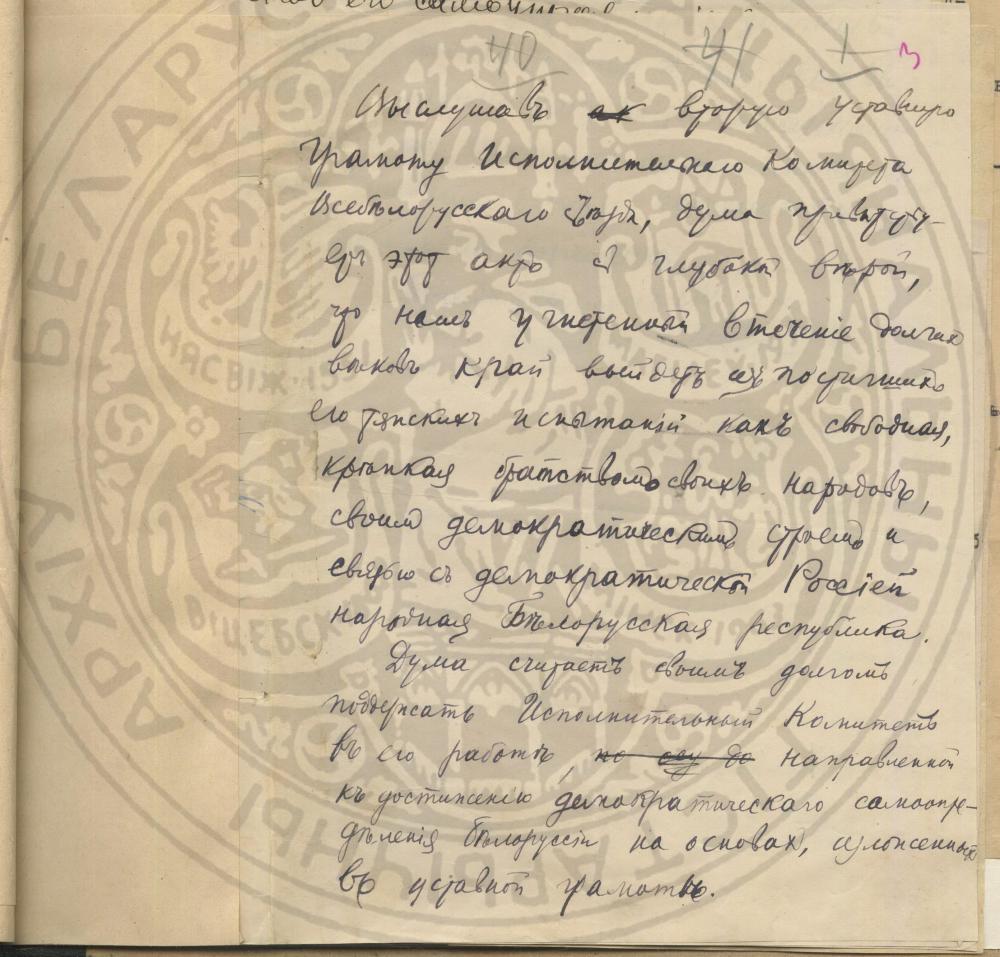 40 41 1 3
Выслушавъ ак вторую уставную
Грамоту Исполнительнаго Комитета
Всебѣлорусскаго Съѣзда, дума привѣтству-
етъ этотъ актъ съ глубокой вѣрой,
что нашъ угнетенный втеченіе долгихъ
вѣковъ край выйдетъ изъ постигшихъ
его тяжкихъ испытаній какъ свободная,
крѣпкая братствомъ своихъ народовъ,
своимъ демократическимъ строемъ и
связью съ демократической Россіей
народная Бѣлорусская республика.
Дума считаетъ своимъ долгомъ
поддержать Исполнительный Комитетъ
въ его работѣ, направленной
къ достиженію демократическаго самоопре-
дѣленія Бѣлоруссіи на основахъ, изложенныхъ
въ уставной грамотѣ.
АРХІЎ БЕЛАРУС
НЯСВІЖ
ВІЦЕБСК